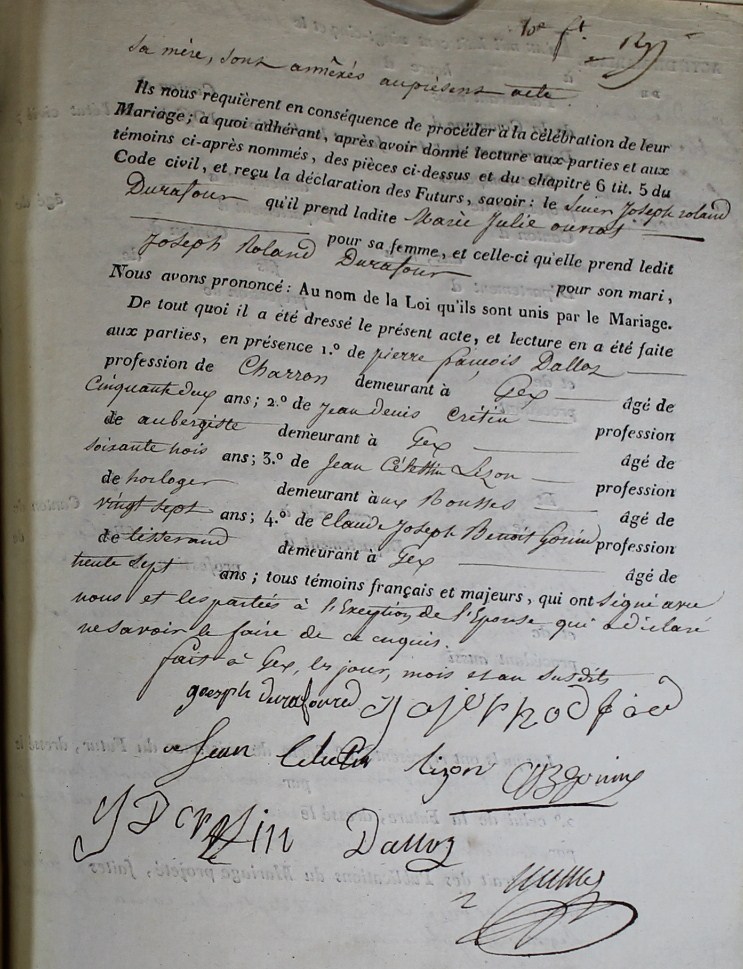 10e ft.
sa mère, sont annéxés au présent acte.
Ils nous requièrent en conséquence de procéder à la célébration de leur
Mariage; à quoi adhérant, après avoir donné lecture aux parties et aux
témoins ci-après nommés, des pièces ci-dessus et du chapitre 6 tit. 5 du
Code civil, et reçu la déclaration des Futurs, savoir: le Sieur Joseph roland
Durafour qu'il prend ladite Marie Julie
pour sa femme, et celle-ci qu'elle prend ledit
Joseph Roland Durafour pour son mari,
Nous avons prononcé: Au nom de la Loi qu'ils sont unis par le Mariage.
De tout quoi il a été dressé le présent acte, et lecture en a été faite
aux parties, en présence 1.º de pierre françois Dalloz
profession de Charron demeurant à Gex âgé de
Cinquante deux ans; 2.º de Jean denis Crétin profession
de aubergiste demeurant à Gex âgé de
soixante trois ans; 3.º de Jean Céléstin Lizon profession
de horloger demeurant aux Rousses âgé de
vingt sept ans; 4.º de Claude Joseph Benoit Gorin profession
de tisserand demeurant à Gex âgé de
trente Sept ans; tous témoins français et majeurs, qui ont signé avec
nous et les parties à l'Exception de l'Epouse qui a déclaré
ne savoir le faire de ce enquis.
fait à Gex, les jour, mois et an susdits
joseph durafoured
Jean Celestin Lizon CJBgorin
JD cretin Dalloz